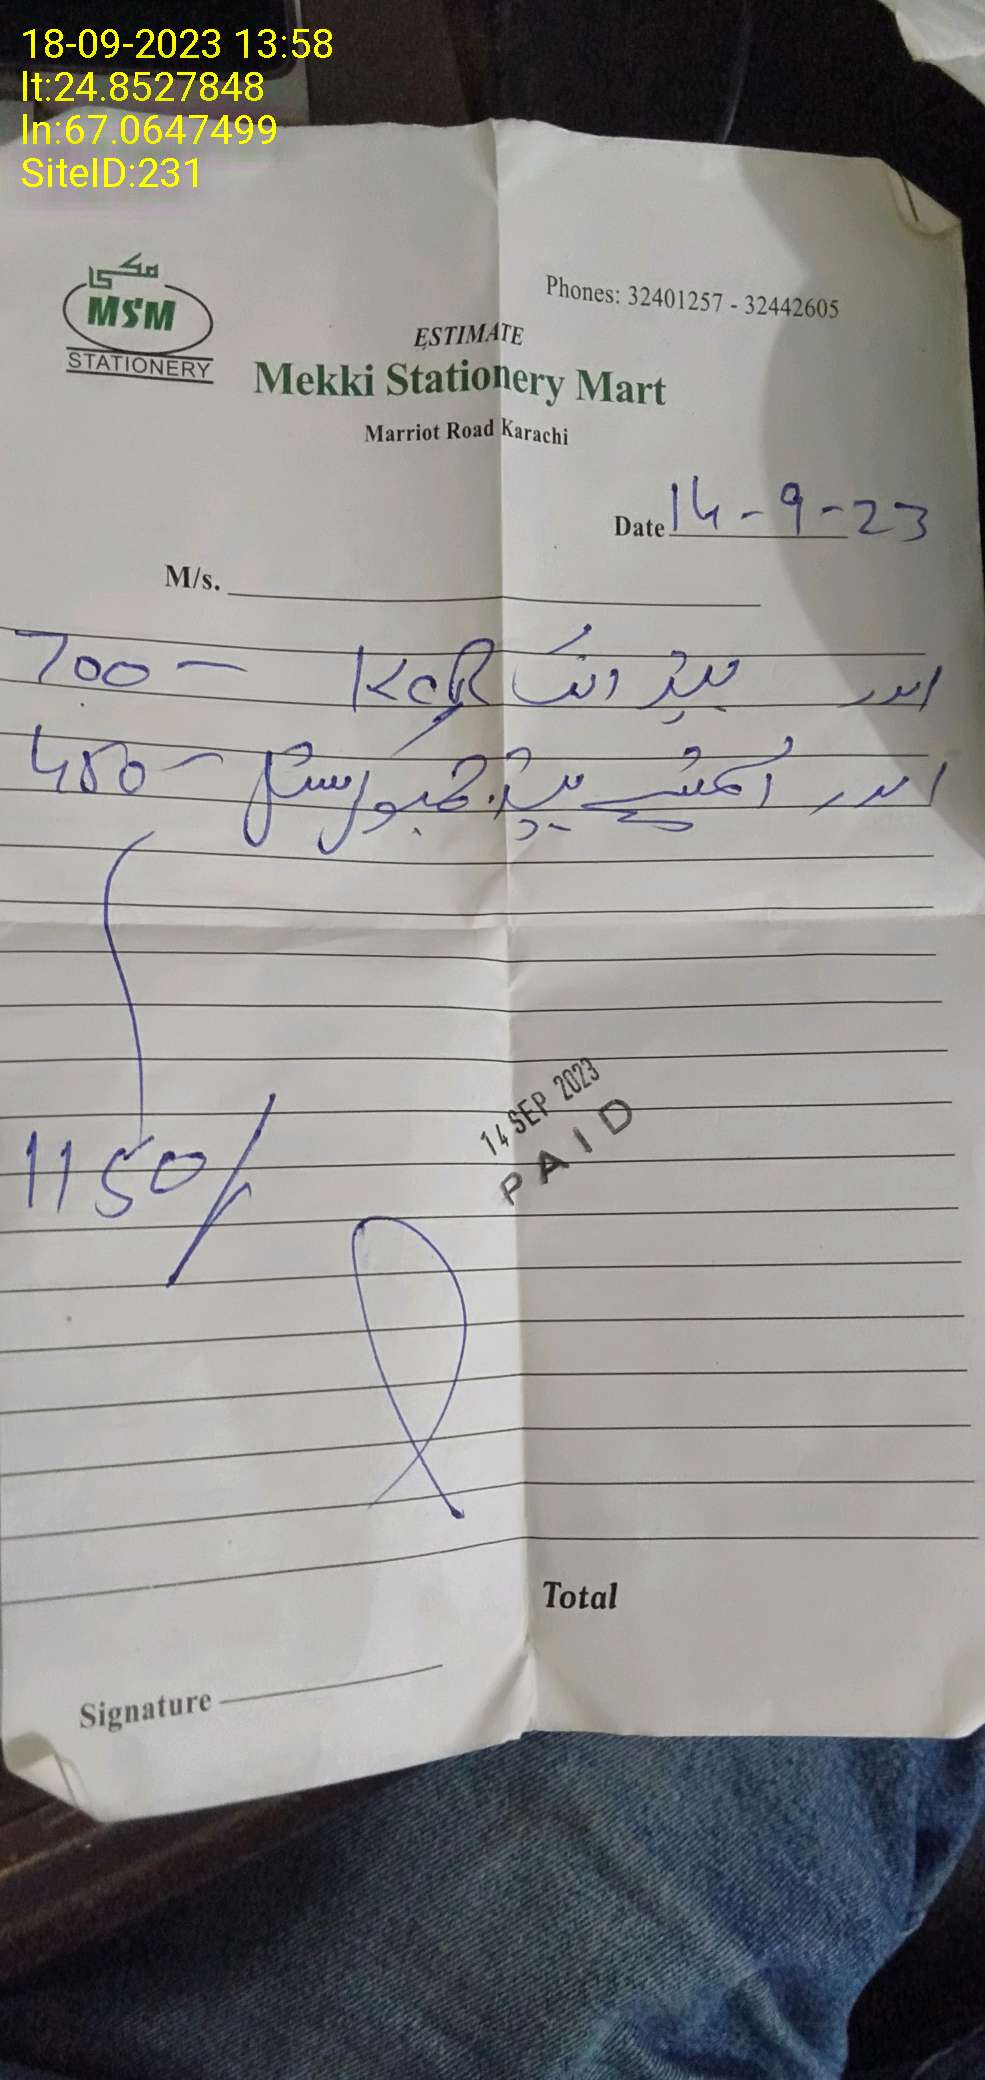 18-09-2023 13:58
lt:24.8527848
ln:67.0647499
SiteID:231
مکی
MSM
STATIONERY
Phones: 32401257 - 32442605
ESTIMATE
Mekki Stationery Mart
Marriot Road Karachi
Date 14-9-23
M/s.
پیڈ انک 700 -
پیڈ 450 -
1150/
14 SEP 2023
PAID
Total
Signature